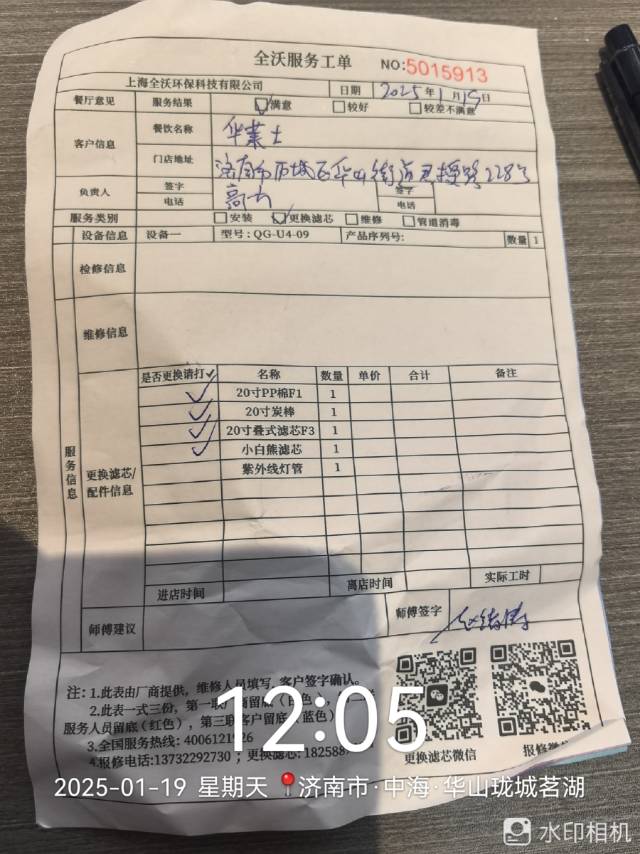 全沃服务工单 NO:5015913
上海全沃环保科技有限公司 日期 2025年1月19日
餐厅意见 服务结果 满意 较好 较差不满意
客户信息 餐饮名称 华莱士
门店地址 济南市历城区华山街道 路228号
负责人 签字 签字
电话 电话
服务类别 安装 更换滤芯 维修 管道消毒
设备信息 设备一 型号:QG-U4-09 产品序列号: 数量 1
检修信息
维修信息
服务信息
更换滤芯/配件信息
是否更换请打✓ 名称 数量 单价 合计 备注
✓ 20寸PP棉F1 1
✓ 20寸炭棒 1
✓ 20寸叠式滤芯F3 1
✓ 小白熊滤芯 1
紫外线灯管 1
进店时间 离店时间 实际工时
师傅建议 师傅签字
注: 1.此表由厂商提供，维修人员填写，客户签字确认。
2.此表一式三份，第一联厂商留底(白色)，
服务人员留底(红色)，第三联客户留底(蓝色)
3.全国服务热线: 4006121926
4.报修电话:13732292730 ; 更换滤芯: 182588
更换滤芯微信 报修微信
12:05
2025-01-19 星期天 济南市·中海·华山珑城茗湖
水印相机